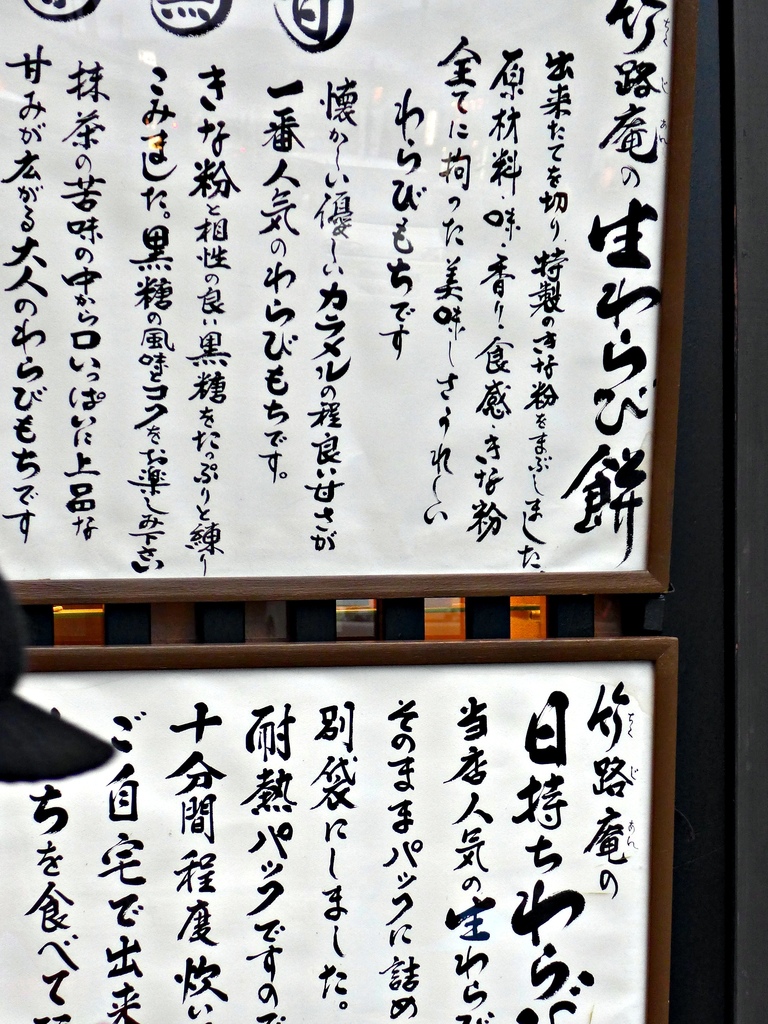 竹路庵の
ちくじあん
生わらび餅
出来たてを切り特製のきな粉をまぶしました。
原材料・味・香り・食感・きな粉
全てに拘った美味しさうれしい
わらびもちです
懐かしい優しいカラメルの程良い甘さが
一番人気のわらびもちです。
きな粉と相性の良い黒糖をたっぷりと練り
こみました。黒糖の風味とコクをお楽しみ下さい
抹茶の苦味の中から口いっぱいに上品な
甘みが広がる大人のわらびもちです
竹路庵の
ちくじあん
日持ちわらび
当店人気の生わらび
そのままパックに詰め
別袋にしました。
耐熱パックですので
十分間程度炊い
ご自宅で出来
ちを食べて